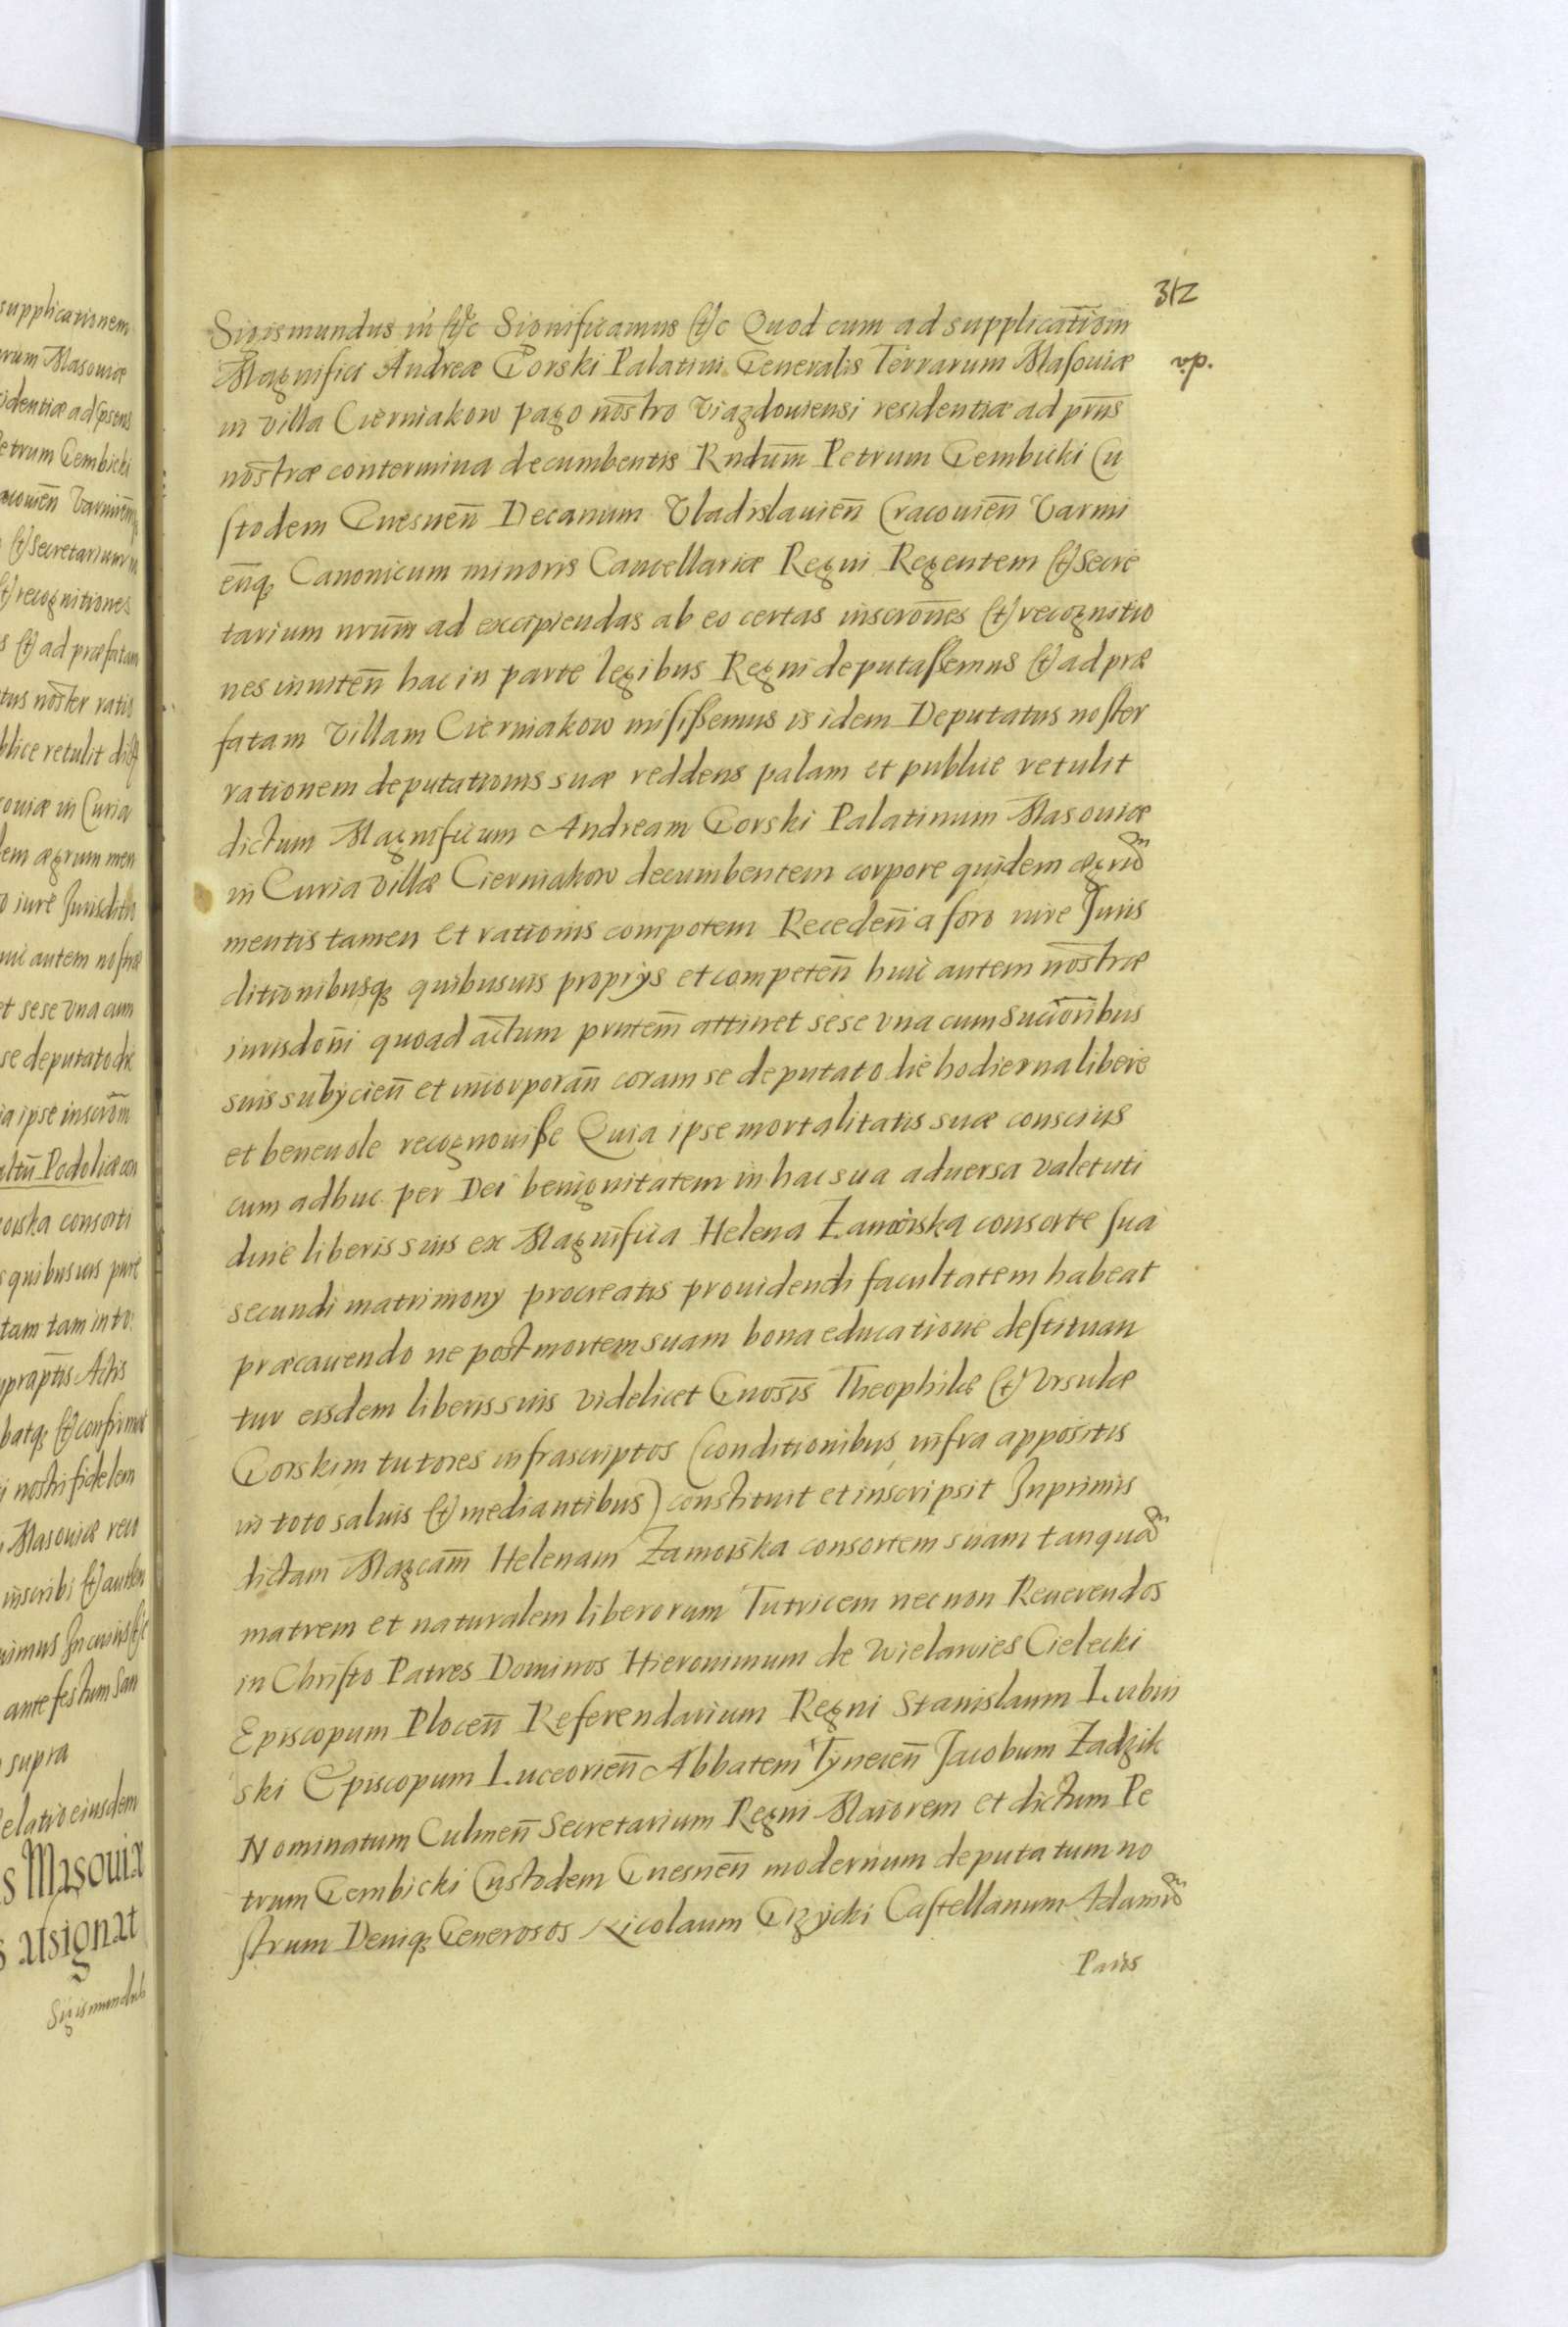 supplicationem
rum Masoviæ
identiæ ad psens
etrum Gembicki
acovień Varmień
(et) Secretarium
(et) recognitiones
s (et) ad præfatam
tus noster ratio
blice retulit
oviæ in Curia
em ægrum men
o iure Jurisditio
uic autem nostræ
et sese una cum
se deputato die
ia ipse inscrom̄
ultū Podoliæ con
oiska consorti
s quibusuis pure
tam tam in to
præptis Actis
batq; (et) confirmat
i nostri fidelem
Masoviæ reco
inscribi (et) authen
imus In cuius (et)c
ante festum San
supra
elatio eiusdem
s Masoviæ
s assignat
Sigismundus
312
Sigismundus iii (et)c Significamus (et)c Quod cum ad supplicatiom̄
Magnifici Andreæ Gorski Palatini Generalis Terrarum Masoviæ
vp.
in villa Czerniakow pago nostro Viazdoviensi residentiæ ad prn̄s
nostræ contermina decumbentis Rndum̄ Petrum Gembicki Cu
stodem Gnesnen̄ Decanum Vladislavien̄ Cracovien̄ Varmi
en̄q; Canonicum minoris Cancellariæ Regni Regentem (et) Secre
tarium nrum̄ ad excipiendas ab eo certas inscron̄es (et) recognitio
nes inniten̄ hac in parte legibus Regni deputassemus (et) ad præ
fatam Villam Cierniakow misissemus is idem Deputatus noster
rationem deputationis suæ reddens palam et publice retulit
dictum Magnificum Andream Gorski Palatinum Masoviæ
in Curia villæ Cierniakow decumbentem corpore quidem ægrum
mentis tamen et rationis compotem Receden̄ a foro iure Juris
ditionibusq; quibusuis proprys et competen̄ huic autem nostræ
iurisdon̄i quoad actum prntem̄ attinet sese una cum Succoribus
suis subÿcien̄ et incorporan̄ coram se deputato die hodierna libere
et beneuole recognouisse Quia ipse mortalitatis suæ conscius
cum adhuc per Dei benignitatem in hac sua aduersa valetuti
dine liberis suis ex Magnifica Helena Zamoiska consorte sua
secundi matrimony procreatis prouidendi facultatem habeat
præcauendo ne post mortem suam bona educatione destituan
tur eisdem liberis suis videlicet Gnosis̄ Theophilæ (et) Ursulæ
Gorskim tutores infrascriptos (conditionibus infra appositis
in toto saluis (et) mediantibus) constituit et inscripsit Inprimis
dictam Magcam̄ Helenam Zamoiska consortem suam tanquam
matrem et naturalem liberorum Tutricem nec non Reuerendos
in Christo Patres Dominos Hieronimum de Wielawies Cielecki
Episcopum Plocen̄ Referendarium Regni Stanislaum Lubin
ski Episcopum Luceorien̄ Abbatem Tynecen̄ Jacobum Zadzik
Nominatum Culmen̄ Secretarium Regni Maiorem et dictum Pe
trum Gembicki Custodem Gnesnen̄ modernum deputatum no
strum Deniq; Generosos Nicolaum Gizycki Castellanum Adamum
Paris